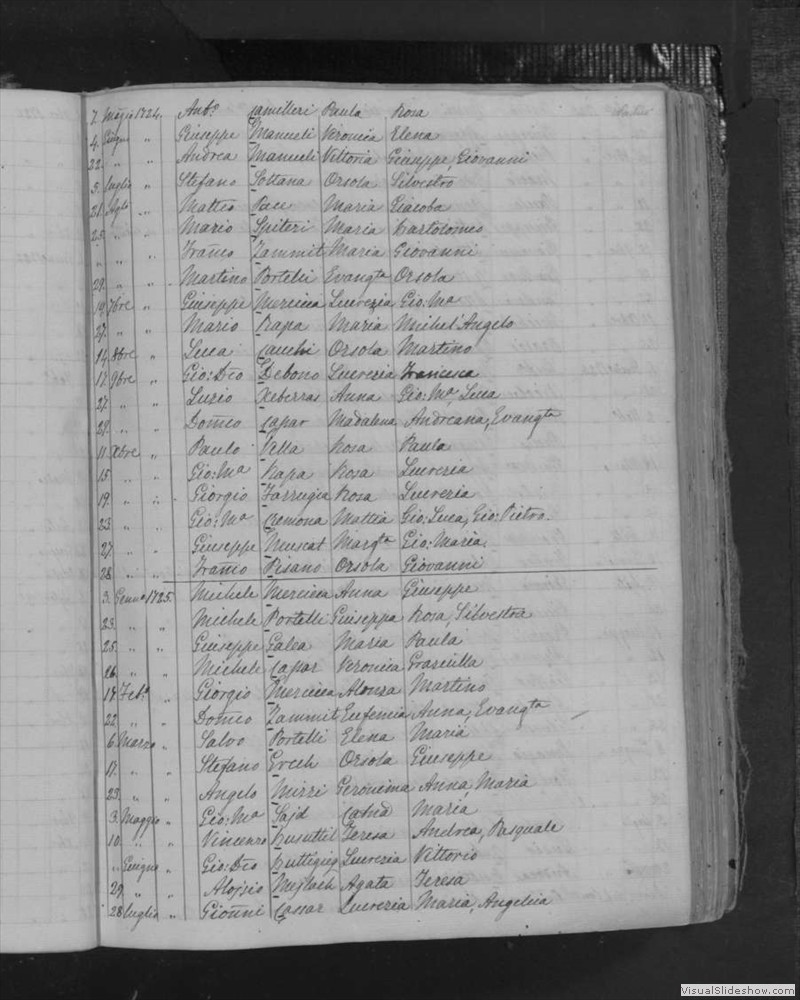 7. Maggio 1724. Ant.º Camilleri Paula Rosa
4. Giugno " Giuseppe Manueli Veronica Elena
22. " " Andrea Manueli Vittoria Giuseppe, Giovanni
5. Luglio " Stefano Sottana Orsola Silvestro
21. Agto " Matteo Pace Maria Giacoba
25. " " Mario Spiteri Maria Bartolomeo
" " " Franco Zammit Maria Giovanni
29. " " Martino Portelli Evangta Orsola
19. 7bre " Giuseppe Mercieca Lucrezia Gio: Mª
27. " " Mario Rapa Maria Michel'Angelo
14. 8bre " Luca Cauchi Orsola Martino
17. 9bre " Gio: Dco Debono Lucrezia Francesca
27. " " Luzio Xeberras Anna Gio: Mª Luca
29. " " Domco Caspar Madalena Andreana, Evangta
11. Xbre " Paulo Vella Rosa Paula
15. " " Gio: Mª Rapa Rosa Lucrezia
19. " " Giorgio Farrugia Rosa Lucrezia
23. " " Gio: Mª Cremona Mattia Gio: Luca, Gio: Pietro.
27. " " Giuseppe Muscat Margta Gio: Maria
28. " " Franco Pisano Orsola Giovanni
3. Gennº 1725. Michele Mercieca Anna Giuseppe
23. " " Michele Portelli Giuseppa Rosa, Silvestra
25. " " Giuseppe Galea Maria Paula
26. " " Michele Caspar Veronica Graziulla
18. Febº " Giorgio Mercieca Alonza Martino
22. " " Domco Zammit Eufemia Anna, Evangta
6. Marzo " Salvo Portelli Elena Maria
17. " " Stefano Grech Orsola Giuseppe
23. " " Angelo Mizzi Geronima Anna Maria
3. Maggio " Gio: Mª Sajd Catna Maria
10. " " Vincenzo Busuttil Teresa Andrea, Pasquale
" Giugno " Gio: Dco Buttigieg Lucrezia Vittorio
29. " " Alojsio Mejlach Agata Teresa
28. Luglio " Gioñni Cassar Lucrezia Maria, Angelica
VisualSlideshow.com